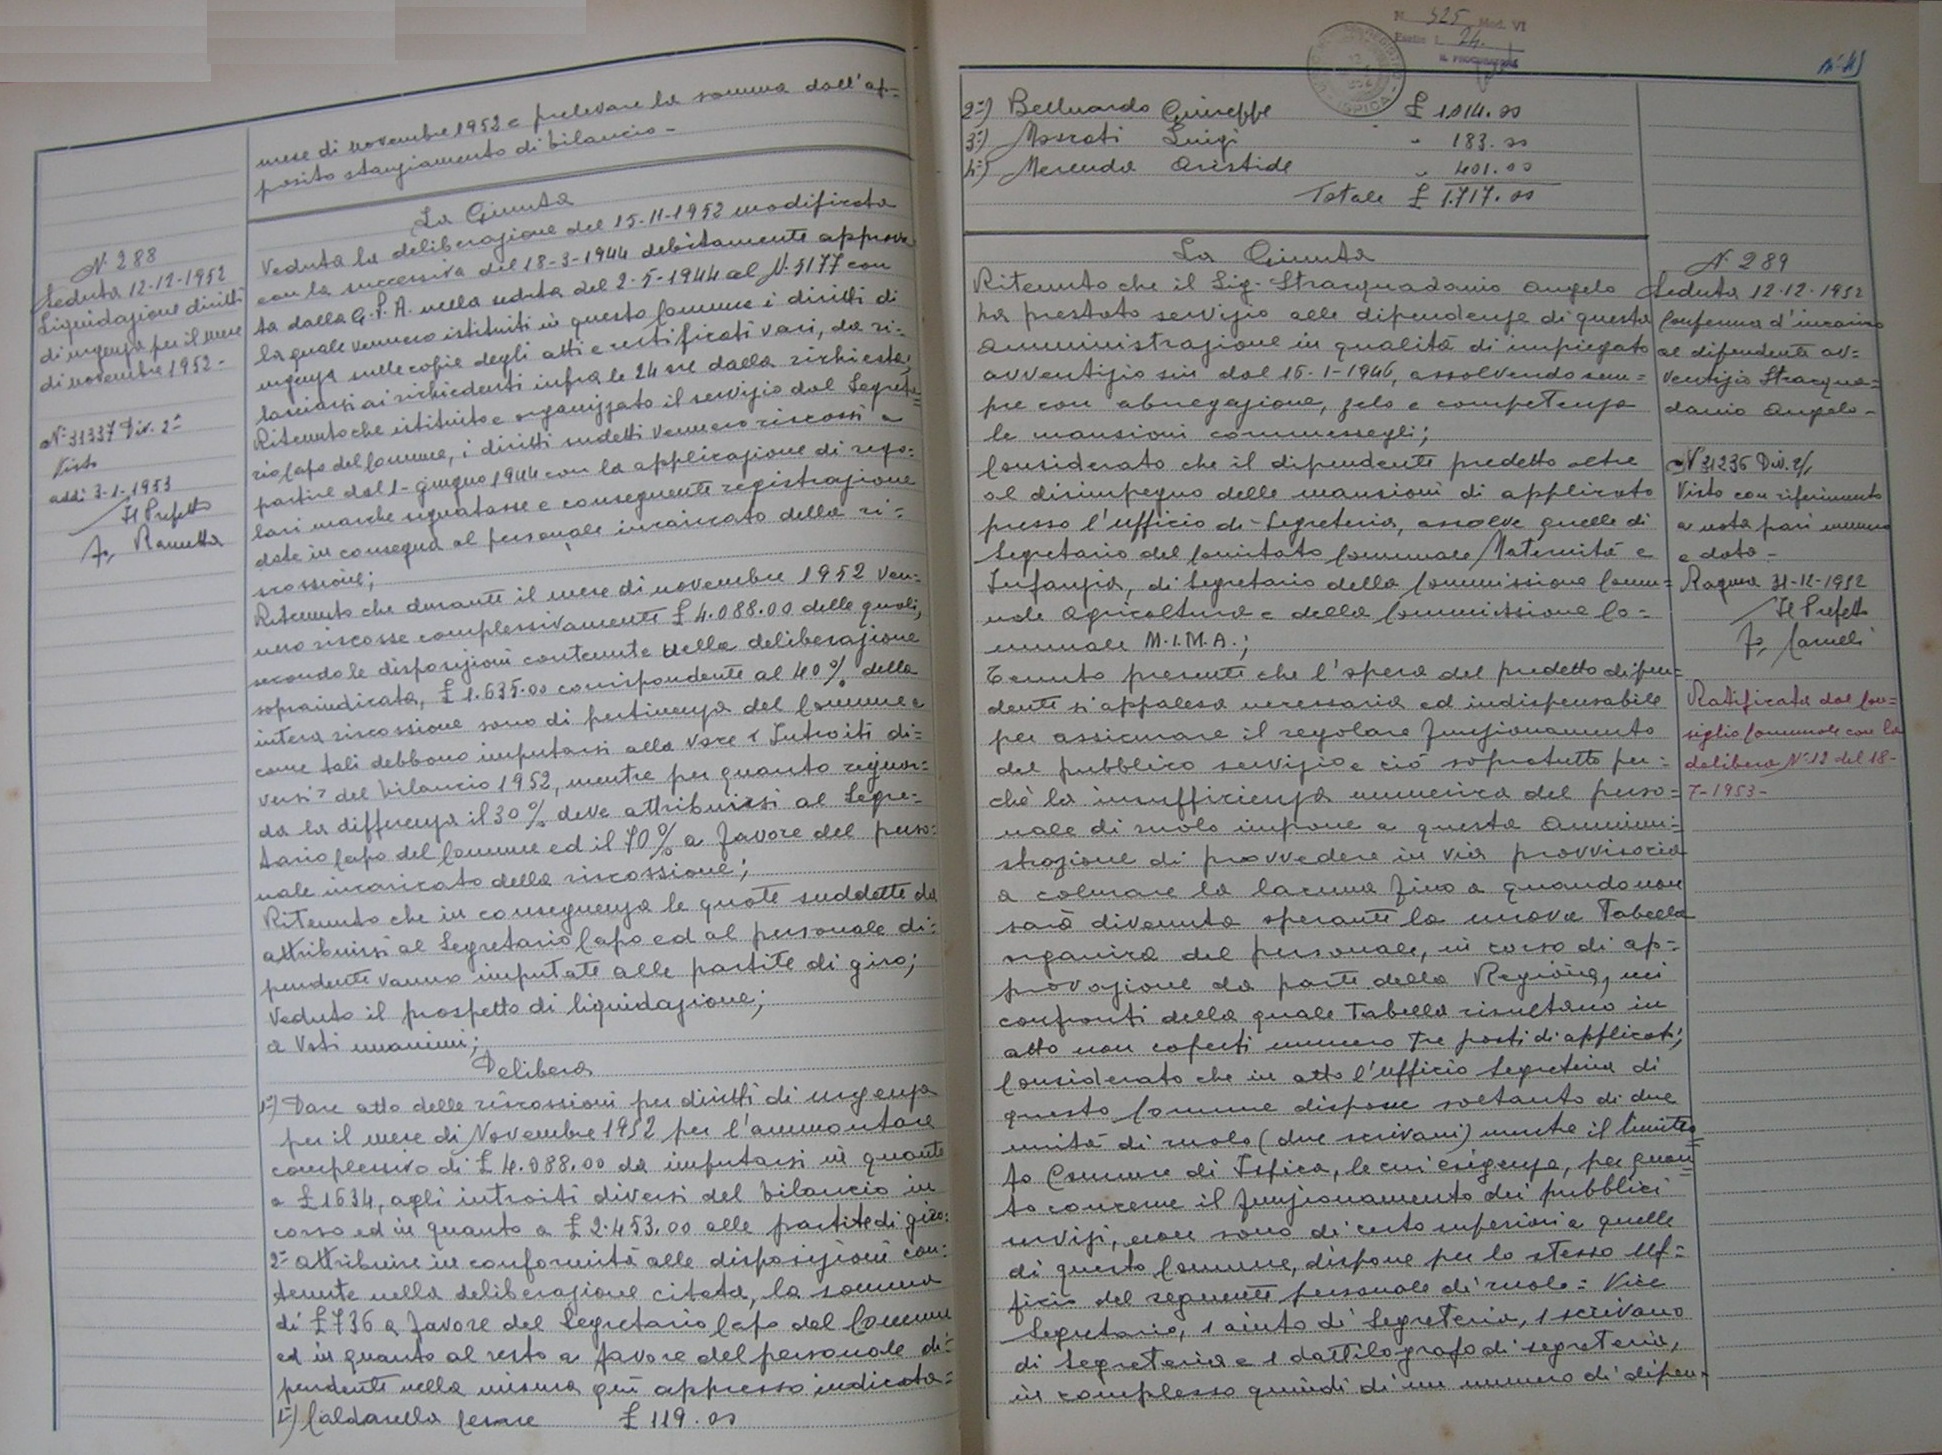 mese di novembre 1952 e prelevare la somma dall'ap=
posito stanziamento di bilancio -
N. 288
Seduta 12-12-1952
Liquidazione diritti
di urgenza per il mese
di novembre 1952 -
N. 31337 Div. 2ª
Visto
addì 3-1-1953
Il Prefetto
La Giunta
Veduta la deliberazione del 15-11-1952 modificata
con la successiva del 18-3-1944 debitamente approva
ta dalla G.P.A. nella seduta del 2-5-1944 al N. 5177 con
la quale vennero istituiti in questo Comune i diritti di
urgenza sulle copie degli atti e certificati vari, da ri=
lasciarsi ai richiedenti infra le 24 ore dalla richiesta;
Ritenuto che istituito e organizzato il servizio dal Segreta=
rio Capo del Comune, i diritti sudetti vennero riscossi a
partire dal 1- giugno 1944 con la applicazione di rego=
lari marche segnatasse e conseguente registrazione
date in consegna al personale incaricato della ri=
scossione;
Ritenuto che durante il mese di novembre 1952 ven=
nero riscosse complessivamente £ 4.088.00 delle quali,
secondo le disposizioni contenute nella deliberazione
sopraindicata, £ 1.635.00 corrispondente al 40% della
intera riscossione sono di pertinenza del Comune e
come tali debbono imputarsi alla voce "Introiti di=
versi" del bilancio 1952, mentre per quanto riguar=
da la differenza il 30% deve attribuirsi al Segre=
tario Capo del Comune ed il 70% a favore del perso=
nale incaricato della riscossione;
Ritenuto che in conseguenza le quote suddette da
attribuirsi al Segretario Capo ed al personale di=
pendente vanno imputate alle partite di giro;
Veduto il prospetto di liquidazione;
a Voti unanimi;
Delibera
1=) Dare atto delle riscossioni per diritti di urgenza
per il mese di Novembre 1952 per l'ammontare
complessivo di £ 4.088.00 da imputarsi in quanto
a £ 1634, agli introiti diversi del bilancio in
corso ed in quanto a £ 2.453.00 alle partite di giro:
2= attribuire in conformità alle disposizioni con=
tenute nella deliberazione citata, la somma
di £ 736 a favore del Segretario Capo del Comune
ed in quanto al resto a favore del personale di=
pendente nella misura qui appresso indicata=
1=) Caldarella Cesare £ 119.00
N. 325 Mod. VI
24.
ISPICA
2=) Belluardo Giuseppe £ 1014.00
3=) Moscati Luigi " 183.00
4=) Merenda Aristide " 401.00
Totale £ 1.717.00
La Giunta
Ritenuto che il Sig. Stracquadanio Angelo
ha prestato servizio alle dipendenze di questa
Amministrazione in qualità di impiegato
avventizio sin dal 16-1-1946, assolvendo sem=
pre con abnegazione, zelo e competenza
le mansioni commessegli;
Considerato che il dipendente predetto oltre
al disimpegno delle mansioni di applicato
presso l'ufficio di Segreteria, assolve quelle di
Segretario del Comitato Comunale Maternità e
Infanzia, di Segretario della Commissione Comu=
nale Agricoltura e della Commissione Co=
munale M.I.M.A.;
Tenuto presente che l'opera del predetto dipen=
dente si appalesa necessaria ed indispensabile
per assicurare il regolare funzionamento
del pubblico servizio e ciò sopratutto per=
chè la insufficienza numerica del perso=
nale di ruolo impone a questa Ammini=
strazione di provvedere in via provvisoria
a colmare la lacuna fino a quando non
sarà divenuta operante la nuova Tabella
organica del personale, in corso di ap=
provazione da parte della Regione, nei
confronti della quale Tabella risultano in
atto non coperti numero tre posti di applicati;
Considerato che in atto l'ufficio Segreteria di
questo Comune dispone soltanto di due
unità di ruolo (due scrivani) mentre il limitro=
fo Comune di Ispica, le cui esigenze, per quan=
to concerne il funzionamento dei pubblici
servizi, non sono di certo superiori a quelle
di questo Comune, dispone per lo stesso Uf=
ficio del seguente personale di ruolo: Vice
Segretario, 1 aiuto di Segreteria, 1 scrivano
di Segreteria e 1 dattilografo di segreteria,
in complesso quindi di un numero di dipen=
N. 289
Seduta 12-12-1952
Conferma d'incarico
al dipendente av=
ventizio Stracqua=
danio Angelo -
N. 31236 Div. 2/
Visto con riferimento
a nota pari numero
e data -
Ragusa 31-12-1952
Il Prefetto
Ratificata dal Con=
siglio Comunale con la
delibera N. 12 del 18-
7-1953 -